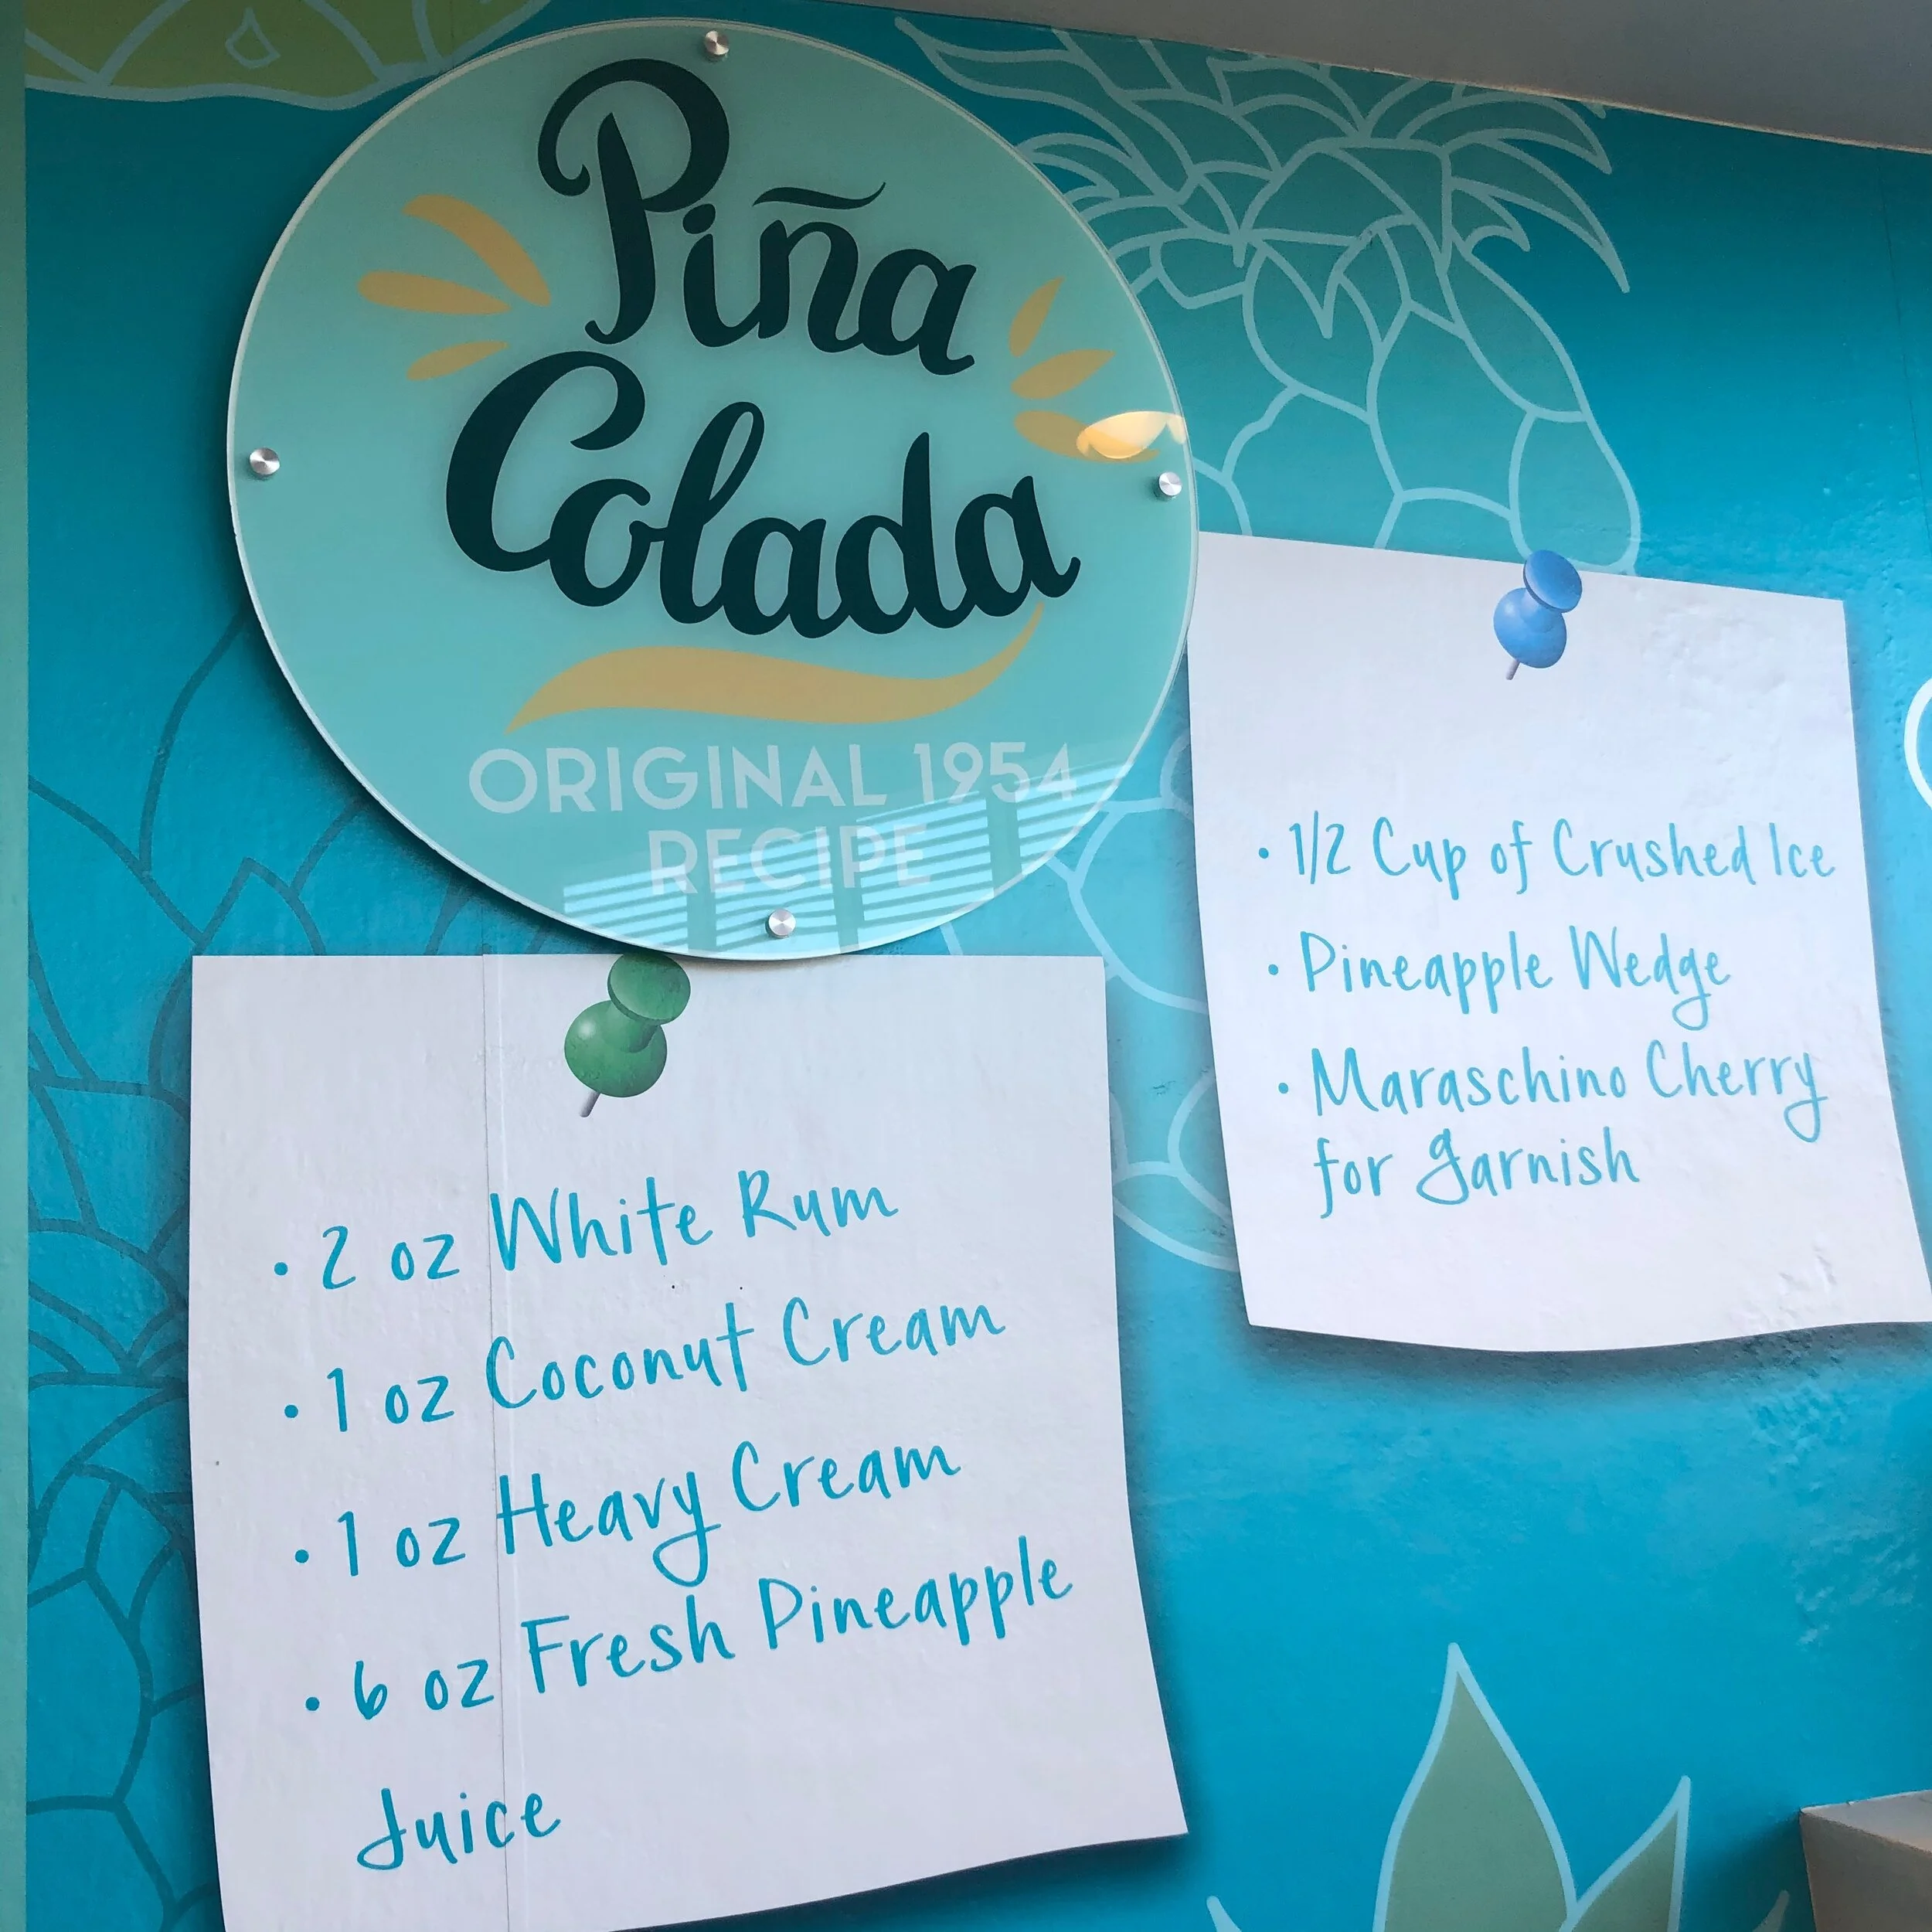 Piña
Colada
ORIGINAL 1954
RECIPE
• 2 oz White Rum
• 1 oz Coconut Cream
• 1 oz Heavy Cream
• 6 oz Fresh Pineapple
Juice
• 1/2 Cup of Crushed Ice
• Pineapple Wedge
• Maraschino Cherry
for garnish